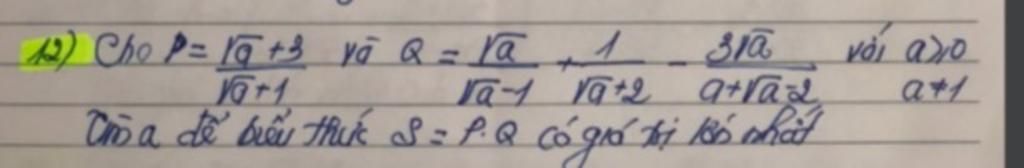 12) Cho P = (√a + 3)/(√a + 1) và Q = √a/(√a - 1) + 1/(√a + 2) - 3√a/(a + √a - 2) với a ≥ 0 a ≠ 1
Tìm a để biểu thức S = P.Q có giá trị lớn nhất